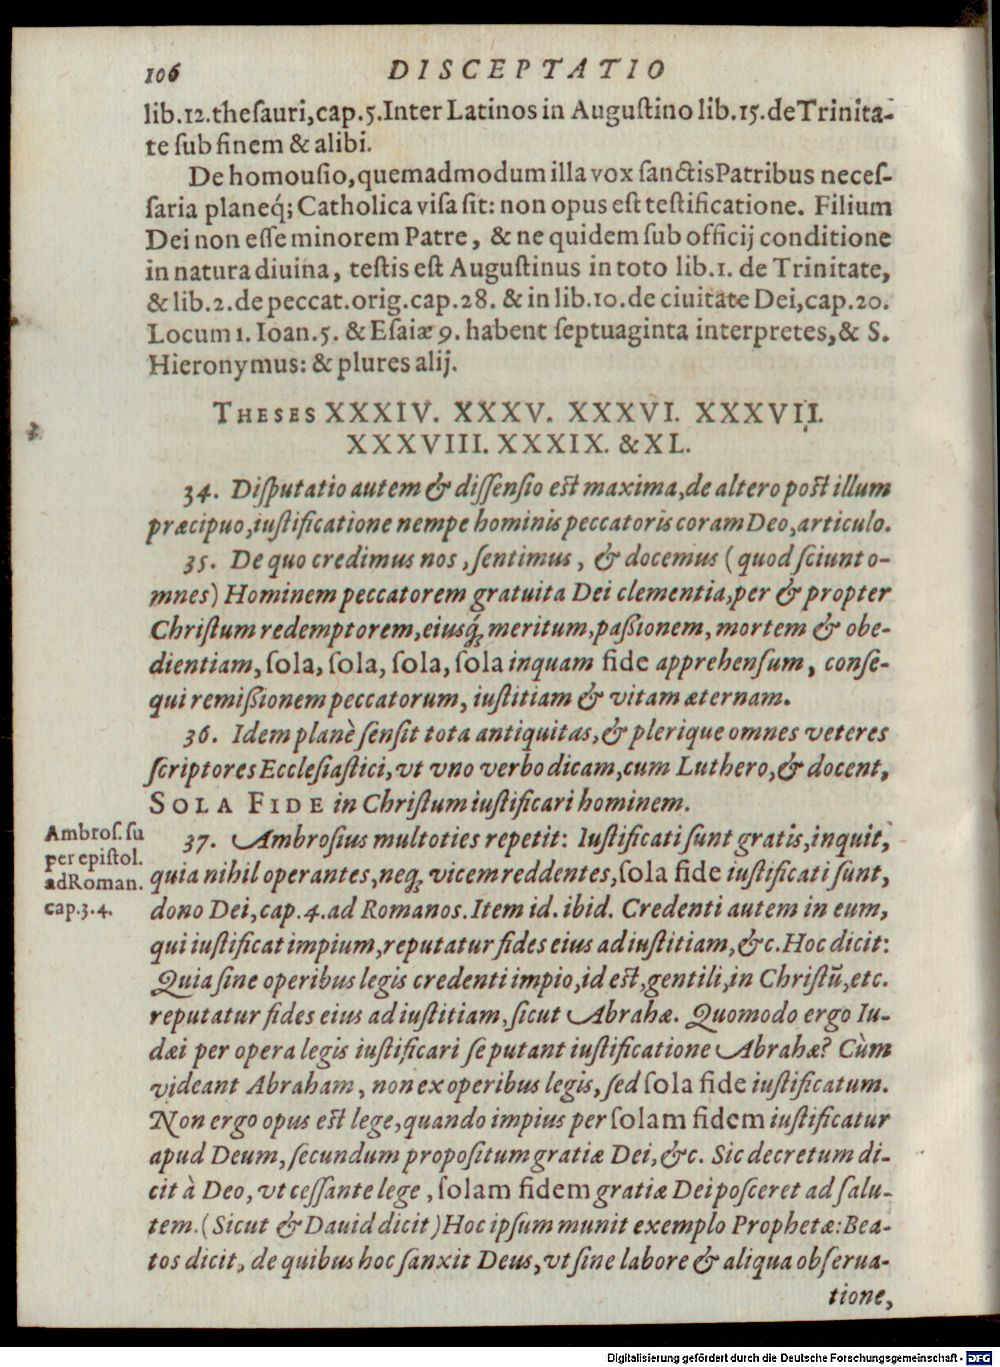 106 DISCEPTATIO
lib.12.theſauri,cap.5.Inter Latinos in Auguſtino lib.15.de Trinita-
te ſub finem & alibi.
De homouſio,quemadmodum illa vox ſanctis Patribus neceſ-
ſaria planeq́; Catholica viſa ſit: non opus eſt teſtificatione. Filium
Dei non eſſe minorem Patre, & ne quidem ſub officij conditione
in natura diuina, teſtis eſt Auguſtinus in toto lib.1. de Trinitate,
& lib.2.de peccat.orig.cap.28. & in lib.10.de ciuitate Dei,cap.20.
Locum 1. Ioan.5. & Eſaiæ 9. habent ſeptuaginta interpretes,& S.
Hieronymus: & plures alij.
THESES XXXIV. XXXV. XXXVI. XXXVII.
XXXVIII. XXXIX. & XL.
34. Diſputatio autem & diſſenſio eſt maxima,de altero poſt illum
præcipuo,iuſtificatione nempe hominis peccatoris coram Deo,articulo.
35. De quo credimus nos, ſentimus, & docemus (quod ſciunt o-
mnes) Hominem peccatorem gratuita Dei clementia,per & propter
Chriſtum redemptorem,eiusq́; meritum,paßionem, mortem & obe-
dientiam, ſola, ſola, ſola, ſola inquam fide apprehenſum, conſe-
qui remißionem peccatorum, iuſtitiam & vitam æternam.
36. Idem planè ſenſit tota antiquitas,& plerique omnes veteres
ſcriptores Eccleſiaſtici,vt vno verbo dicam,cum Luthero,& docent,
SOLA FIDE in Chriſtum iuſtificari hominem.
Ambroſ. ſu
per epiſtol.
ad Roman.
cap.3.4.
37. Ambroſius multoties repetit: Iuſtificati ſunt gratis,inquit,
quia nihil operantes,neq; vicem reddentes,ſola fide iuſtificati ſunt,
dono Dei,cap.4.ad Romanos.Item id. ibid. Credenti autem in eum,
qui iuſtificat impium,reputatur fides eius ad iuſtitiam,&c.Hoc dicit:
Quia ſine operibus legis credenti impio,id eſt,gentili,in Chriſtũ,etc.
reputatur fides eius ad iuſtitiam,ſicut Abrahæ. Quomodo ergo Iu-
dæi per opera legis iuſtificari ſe putant iuſtificatione Abrahæ? Cùm
videant Abraham, non ex operibus legis, ſed ſola fide iuſtificatum.
Non ergo opus eſt lege,quando impius per ſolam fidem iuſtificatur
apud Deum,ſecundum propoſitum gratiæ Dei,&c. Sic decretum di-
cit à Deo, vt ceſſante lege, ſolam fidem gratiæ Dei poſceret ad ſalu-
tem. (Sicut & Dauid dicit) Hoc ipſum munit exemplo Prophetæ: Bea-
tos dicit, de quibus hoc ſanxit Deus, vt ſine labore & aliqua obſerua-
tione,
Digitalisierung gefördert durch die Deutsche Forschungsgemeinschaft - DFG